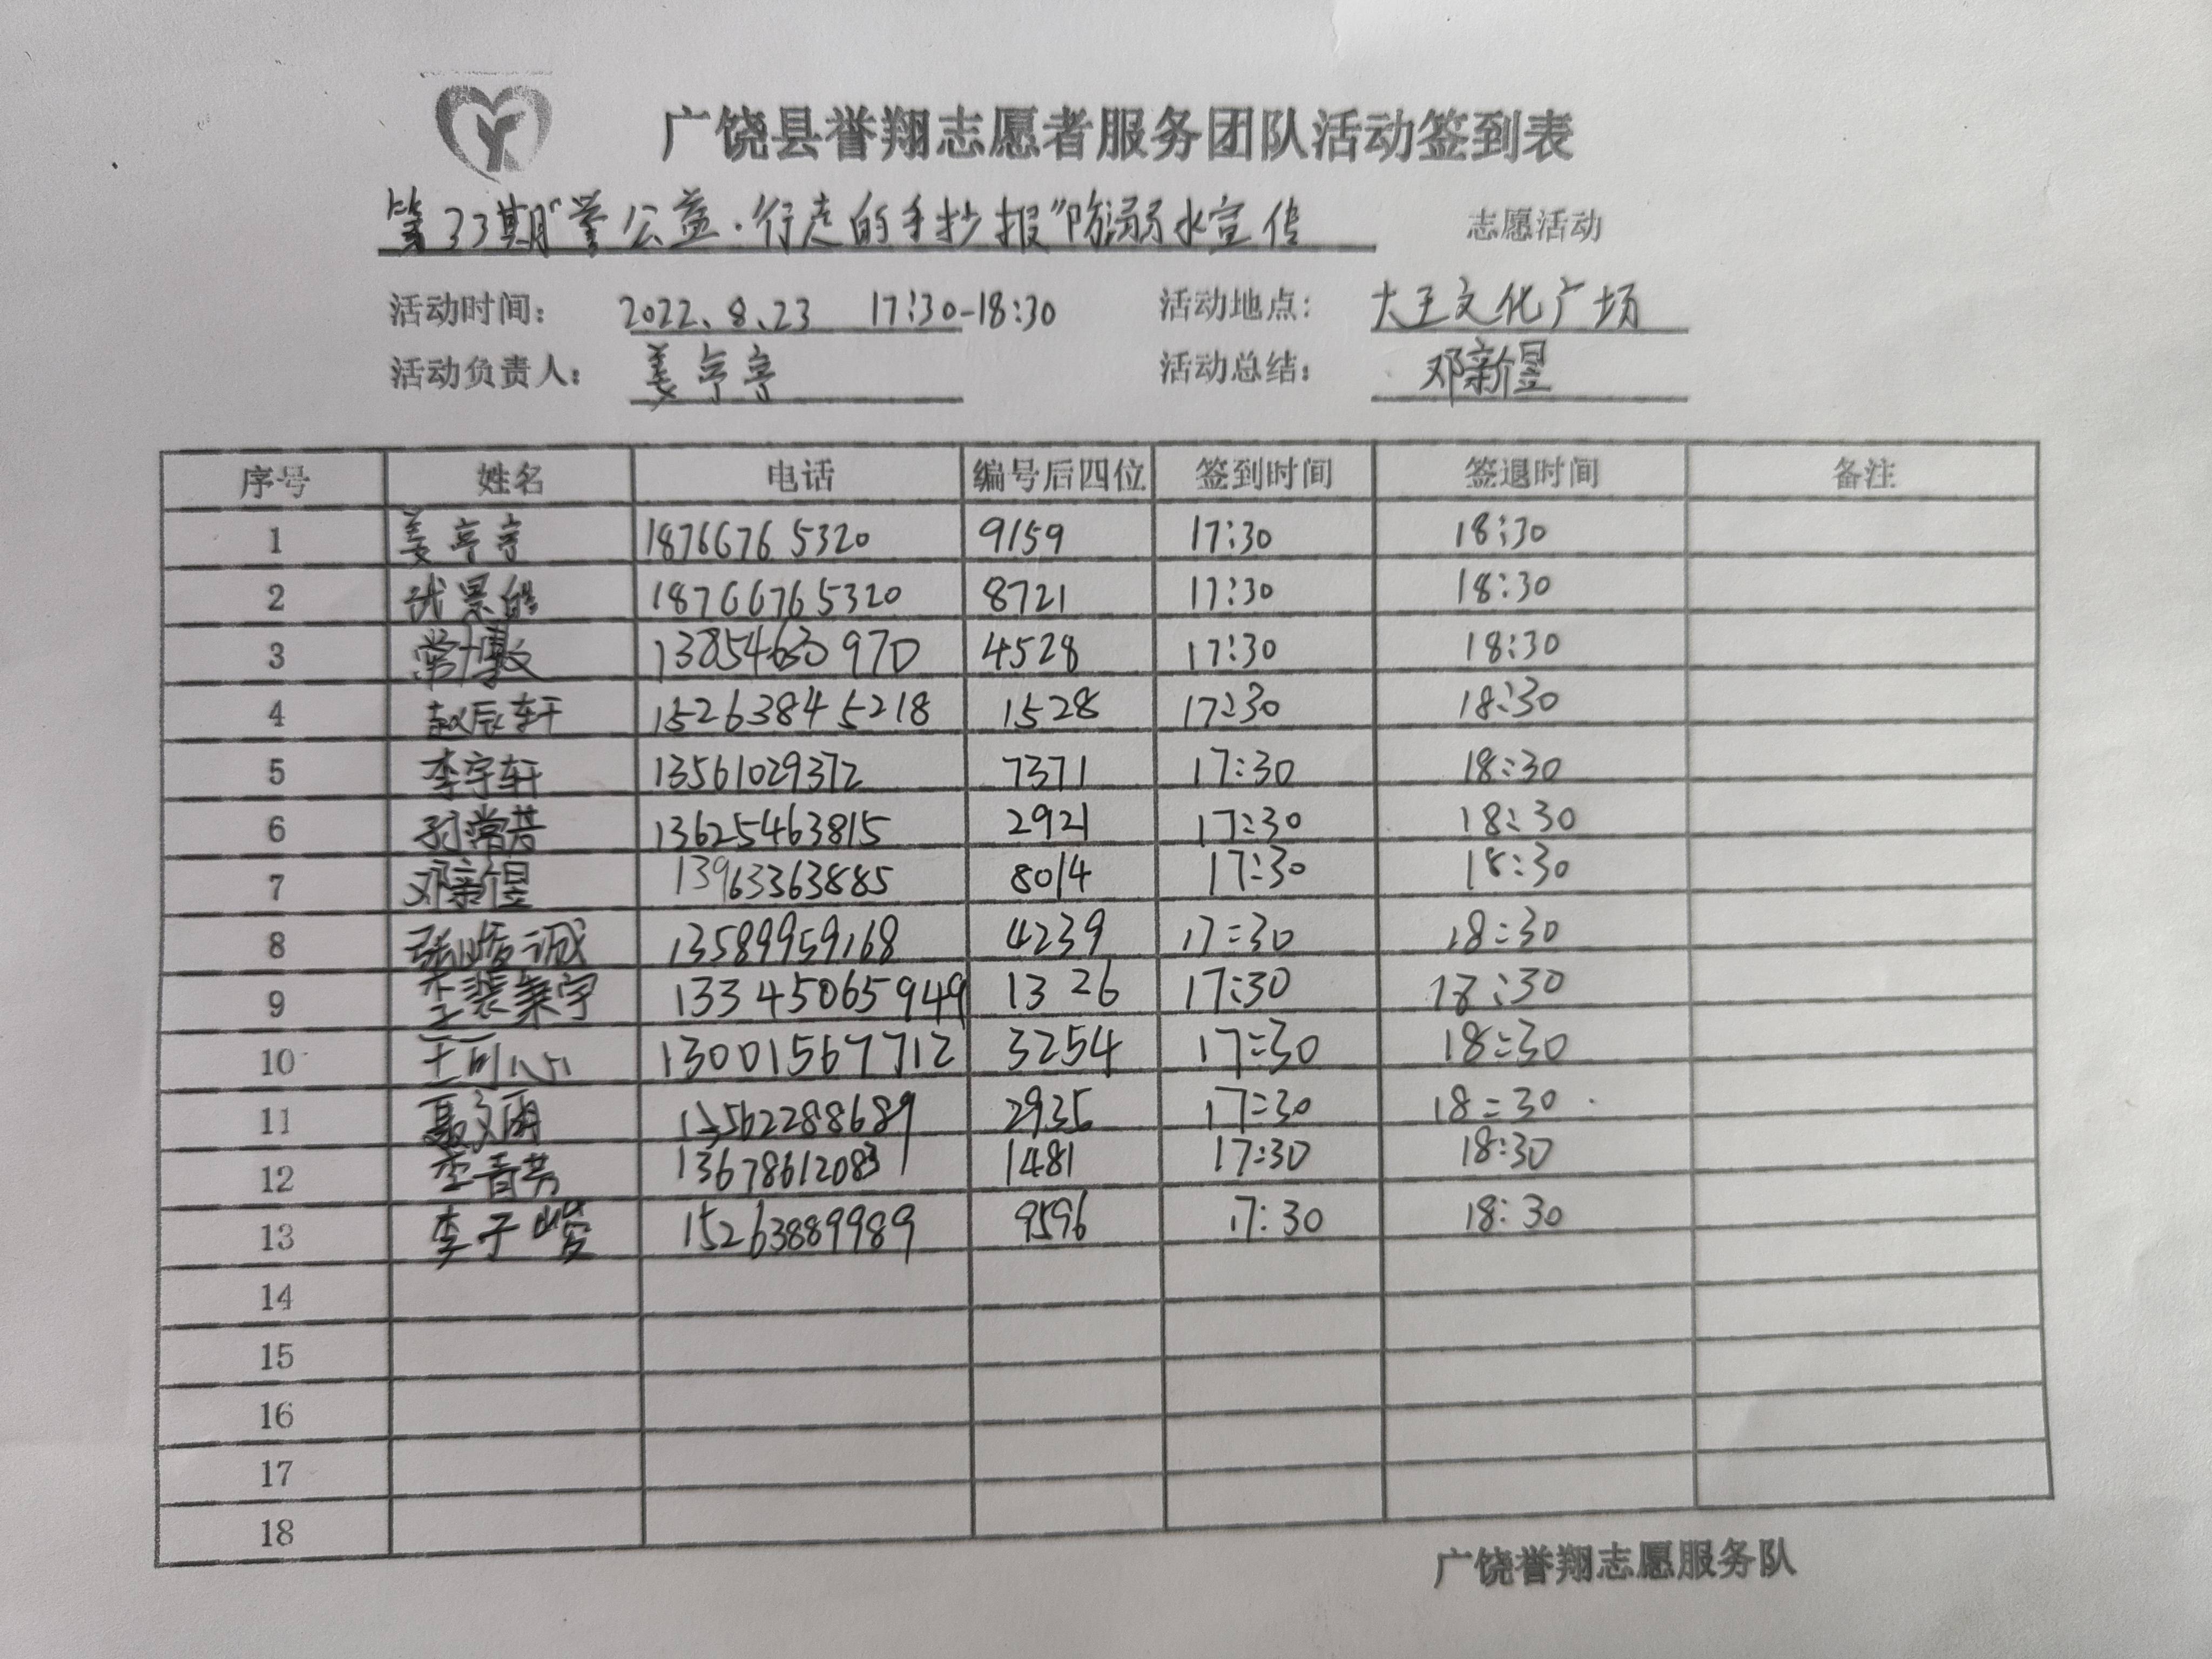 广饶县誉翔志愿者服务团队活动签到表
第33期“誉公益·行走的手抄报”防溺水宣传 志愿活动
活动时间: 2022.8.23 17:30-18:30 活动地点: 大王文化广场
活动负责人: 姜亭亭 活动总结: 邓新昱
序号 姓名 电话 编号后四位 签到时间 签退时间 备注
1 姜亭亭 18766765320 9159 17:30 18:30
2 18766765320 8721 17:30 18:30
3 常博文 13854630970 4528 17:30 18:30
4 赵辰轩 15263845218 1528 17:30 18:30
5 李宇轩 13561029372 7371 17:30 18:30
6 孙常芳 13625463815 2921 17:30 18:30
7 邓新昱 13963363885 8014 17:30 18:30
8 张峻诚 13589959168 4239 17:30 18:30
9 13345065949 1326 17:30 18:30
10 王可心 13001567712 3254 17:30 18:30
11 聂文雨 13562288689 2935 17:30 18:30
12 李青芳 13678612083 1481 17:30 18:30
13 李子 15263889989 9596 17:30 18:30
14
15
16
17
18
广饶誉翔志愿服务队